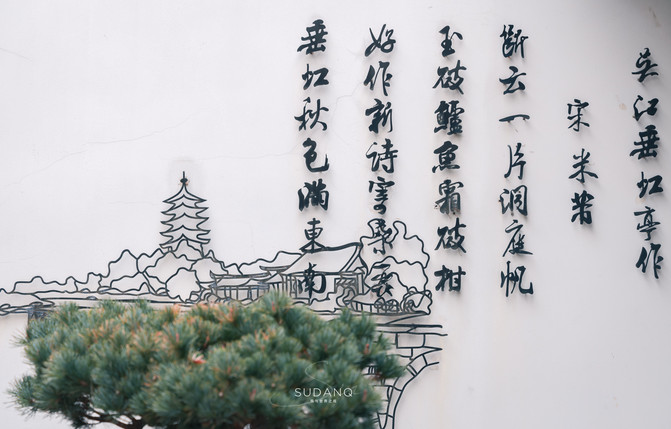 吴江垂虹亭作
宋米芾
断云一片洞庭帆
玉破鱸魚霜破柑
好作新詩寄桑苧
垂虹秋色滿東南
SUDANQ